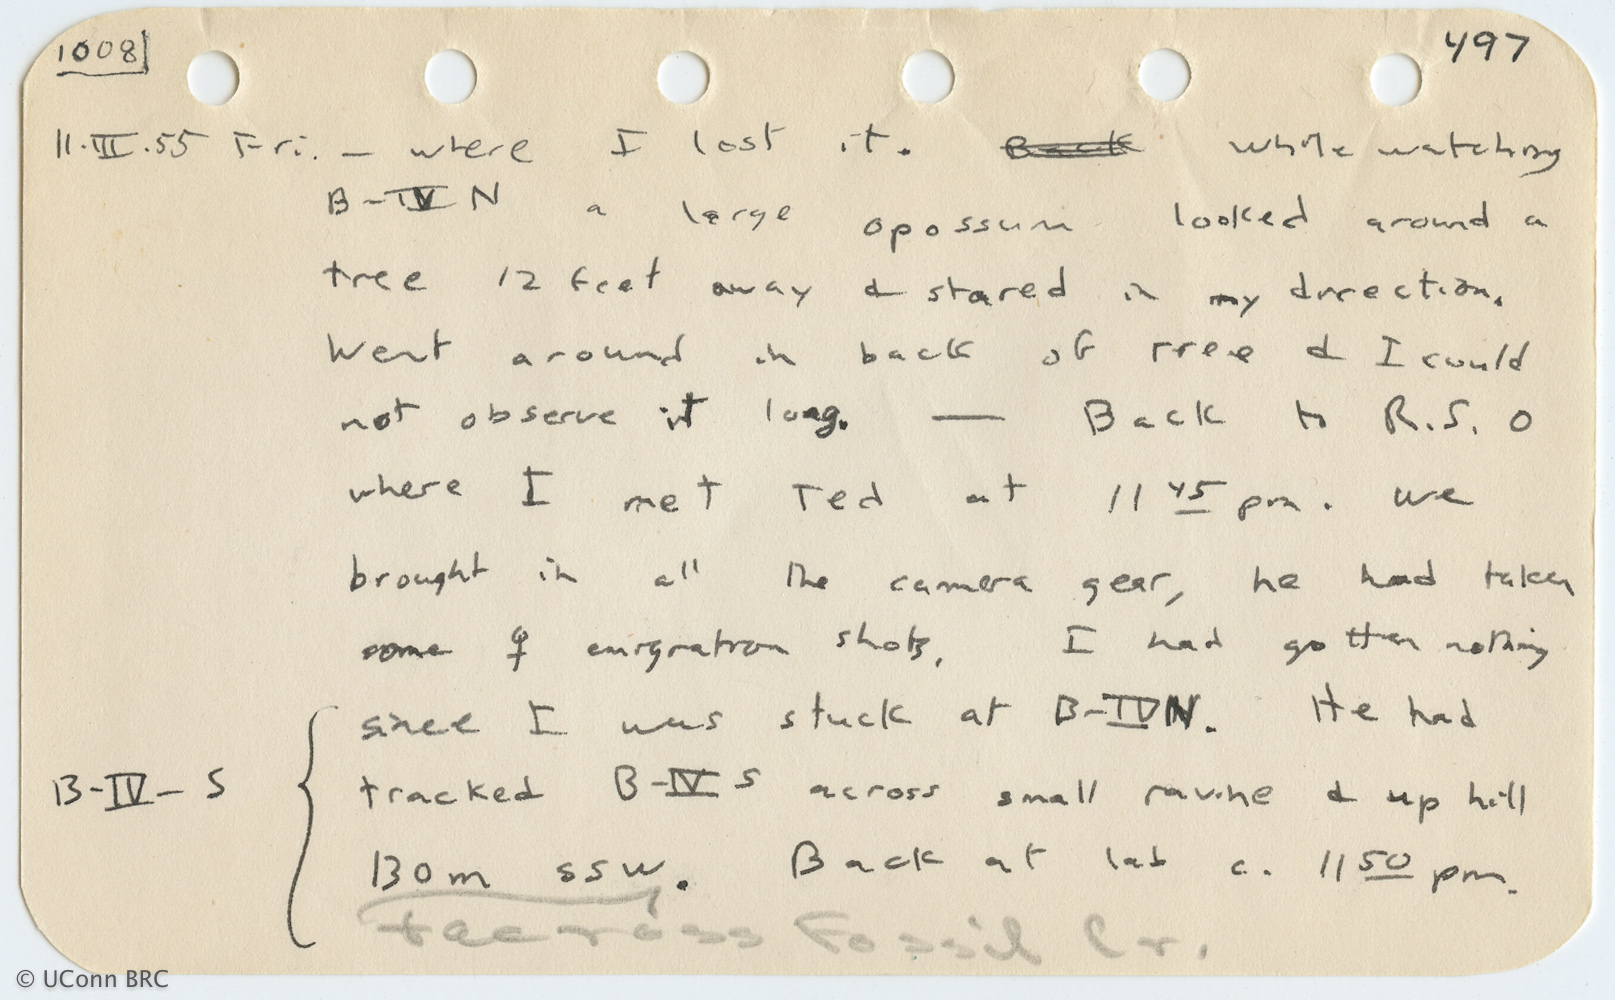 1008 497
11.III.55 Fri. — where I lost it. Back while watching
B-IV N a large opossum looked around a
tree 12 feet away & stared in my direction.
Went around in back of tree & I could
not observe it long. — Back to R.S. O
where I met Ted at 11 45 pm. we
brought in all the camera gear, he had taken
some ♀ emigration shots, I had gotten nothing
since I was stuck at B-IV N. He had
B-IV-S tracked B-IV S across small ravine & up hill
130m SSW. Back at lab c. 11 50 pm.
across Fossil Cr.
© UConn BRC